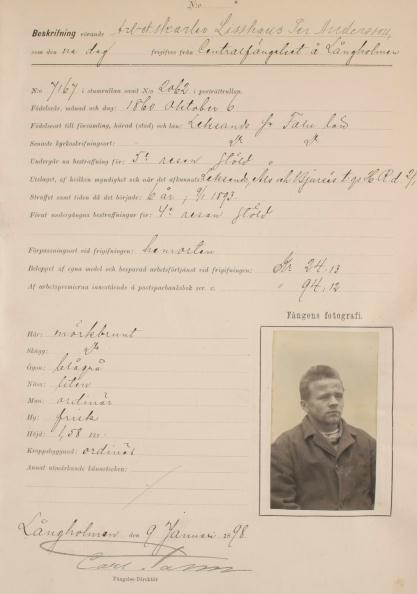 N:o
Beskrifning rörande Arb-tskarlen Lisshans Per Andersson,
som den na dag frigifves från Centralfängelset å Långholmen
N:o 7167 i stamrullan samt N:o 2062 i porträttrullan.
Födelseår, månad och dag: 1860 Oktober 6
Födelseort till församling, härad (stad) och län: Leksands fg Falu län
Senaste kyrkoskrifningsort: D:o D:o
Undergår nu bestraffning för: 5te resan stöld
Utslaget, af hvilken myndighet och när det afkunnats: Leksand, Als och Bjursås t.gs H.R d. 9/1
Straffet samt tiden då det började: 6 år, 9/1 1893.
Förut undergångna bestraffningar för: 4e resan stöld
Förpassningsort vid frigifningen: hemorten
Beloppet af egna medel och besparad arbetsförtjänst vid frigifningen: Kr 24.13
Af arbetspremierna innestående å postsparbanksbok ser. c. " 94.12
Fångens fotografi.
Hår: mörkbrunt
Skägg: D:o
Ögon: blågrå
Näsa: liten
Mun: ordinär
Hy: frisk
Höjd: 1,58 m.
Kroppsbyggnad: ordinär
Annat utmärkande kännetecken:
Långholmen den 9 Januari 1898.
Carl
Fängelse-Direktör